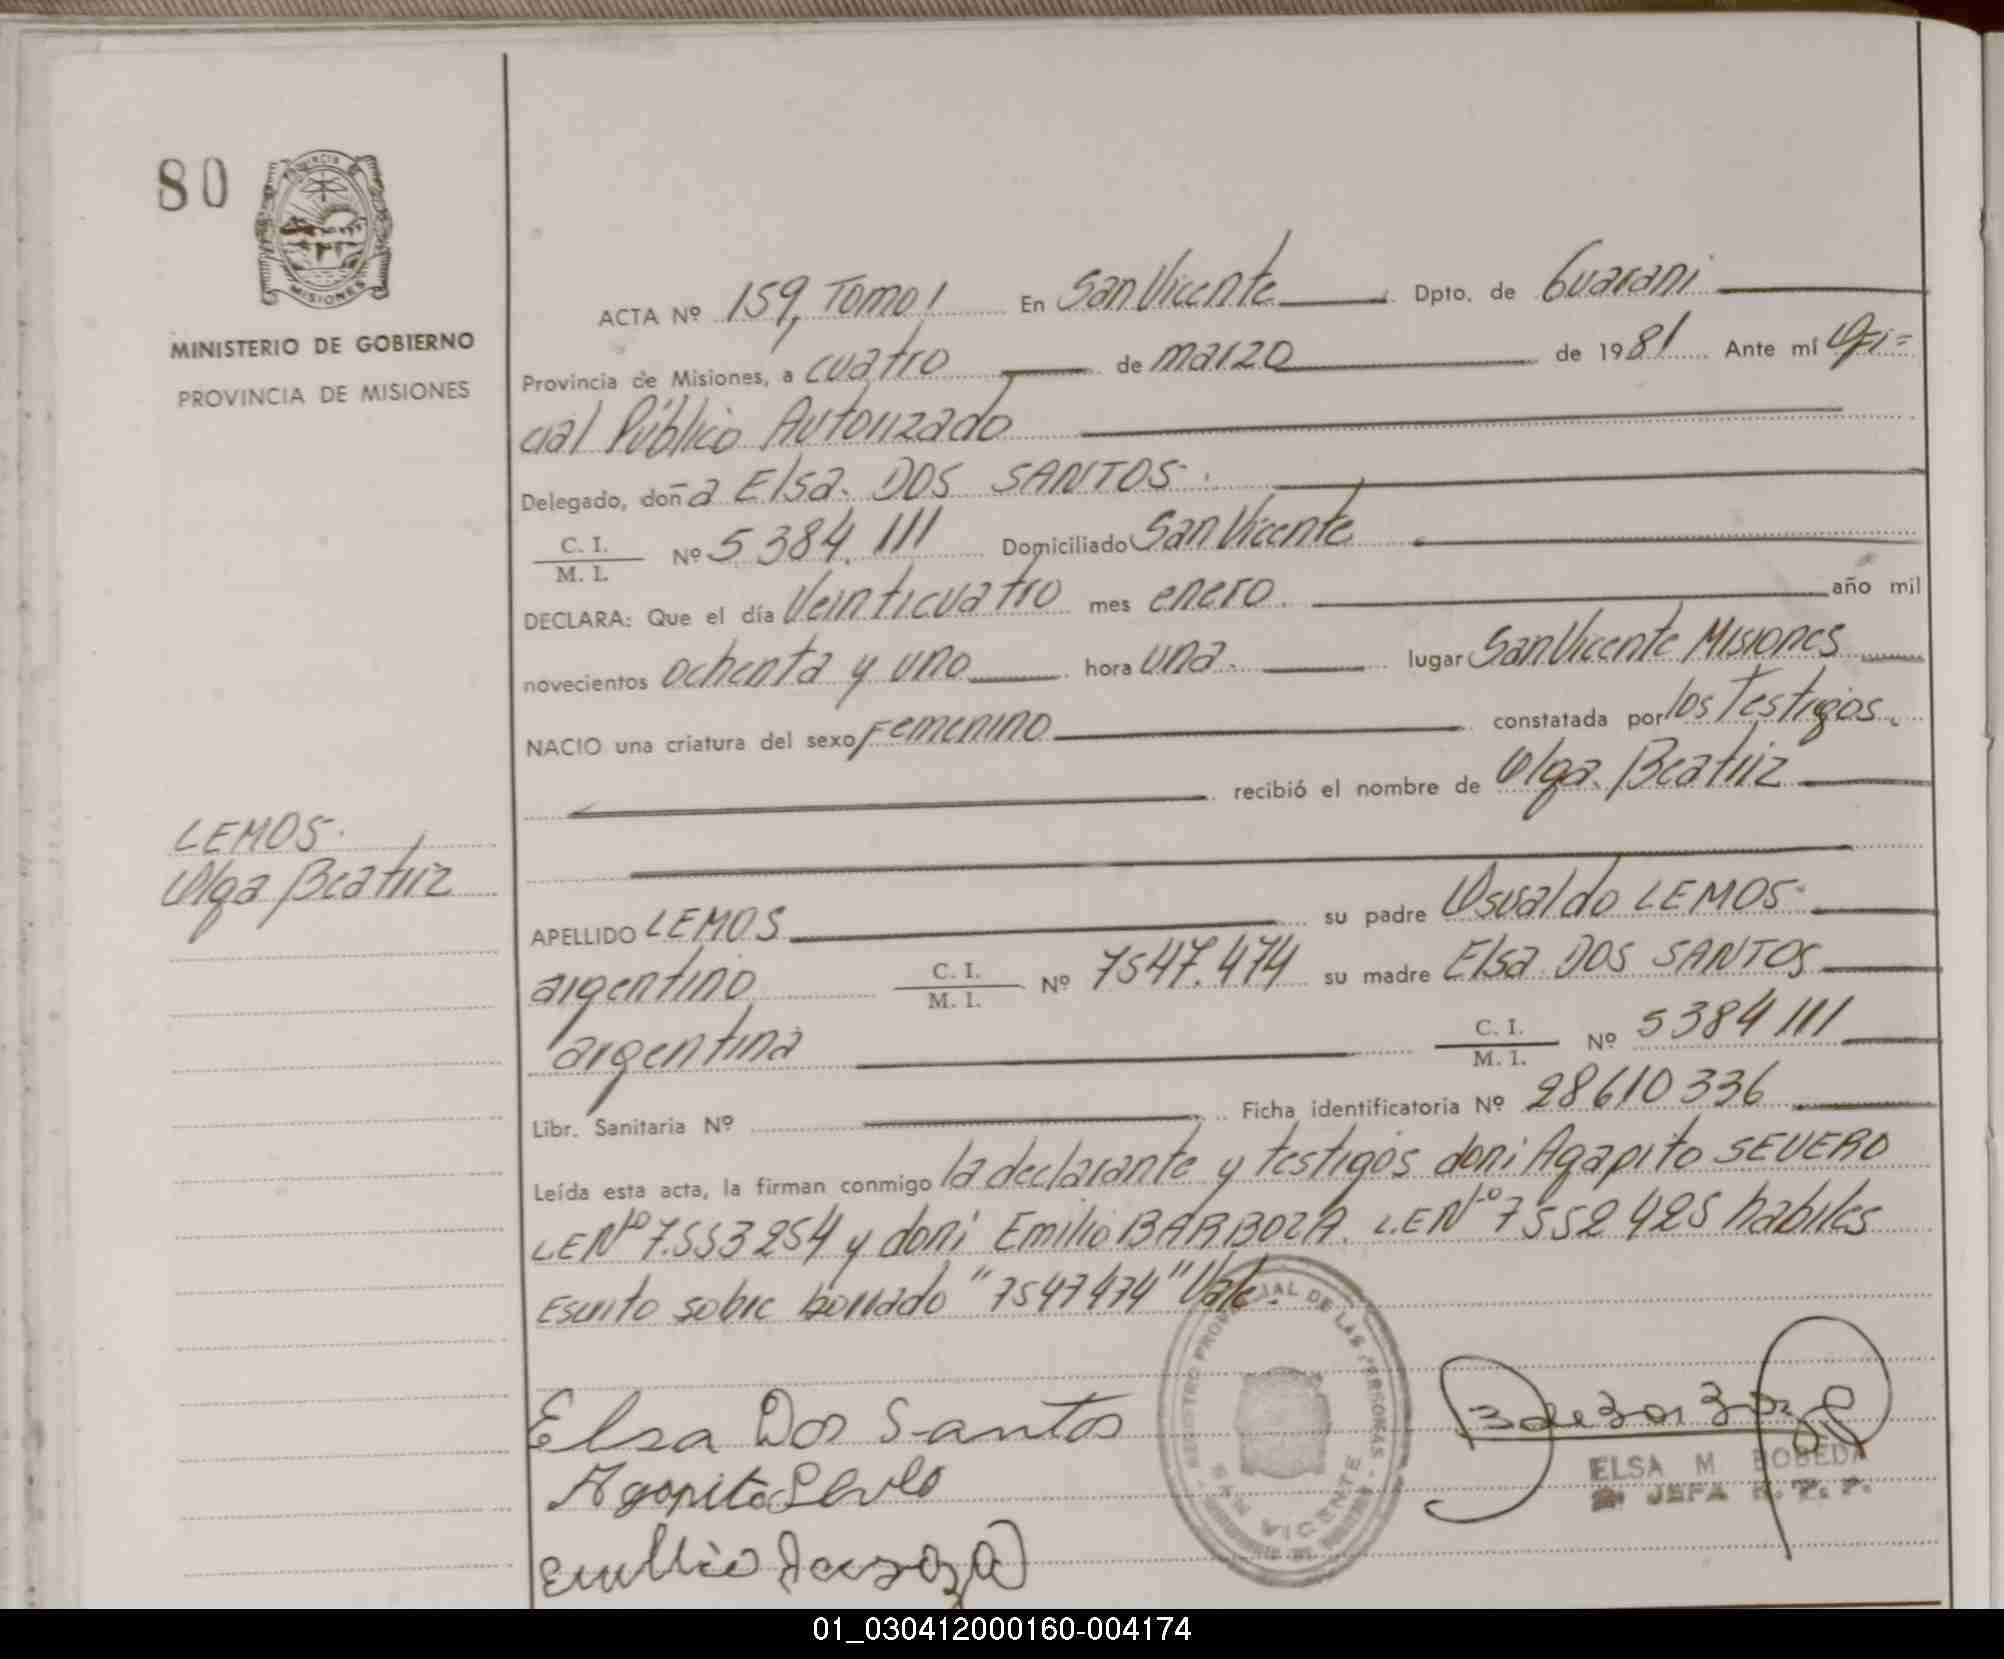 80
PROVINCIA
MISIONES
MINISTERIO DE GOBIERNO
PROVINCIA DE MISIONES
ACTA Nº 159, Tomo I En San Vicente Dpto. de Guarani
Provincia de Misiones, a cuatro de marzo de 1981 Ante mí Ofi=
cial Público Autorizado
Delegado, doña Elsa. DOS SANTOS.
C. I. / M. I. Nº 5384.111 Domiciliado San Vicente
DECLARA: Que el día Veinticuatro mes enero. año mil
novecientos ochenta y uno hora una. lugar San Vicente Misiones
NACIO una criatura del sexo Femenino constatada por los Testigos.
recibió el nombre de Olga. Beatriz
LEMOS.
Olga Beatriz
APELLIDO LEMOS su padre Osvaldo LEMOS.
argentino C. I. / M. I. Nº 7547.474 su madre Elsa DOS SANTOS
argentina C. I. / M. I. Nº 5384111
Libr. Sanitaria Nº Ficha identificatoria Nº 28610336
Leída esta acta, la firman conmigo la declarante y testigos don: Agapito SEVERO
LE Nº 7.553254 y don: Emilio BARBOZA. LE Nº 7552425 habiles
Escrito sobre borrado "7547474" Vale.
REGISTRO PROVINCIAL DE LAS PERSONAS
SAN VICENTE
Elsa Dos Santos
Agapito Severo
ELSA M BOBEDA
JEFA R. P. P.
01_030412000160-004174